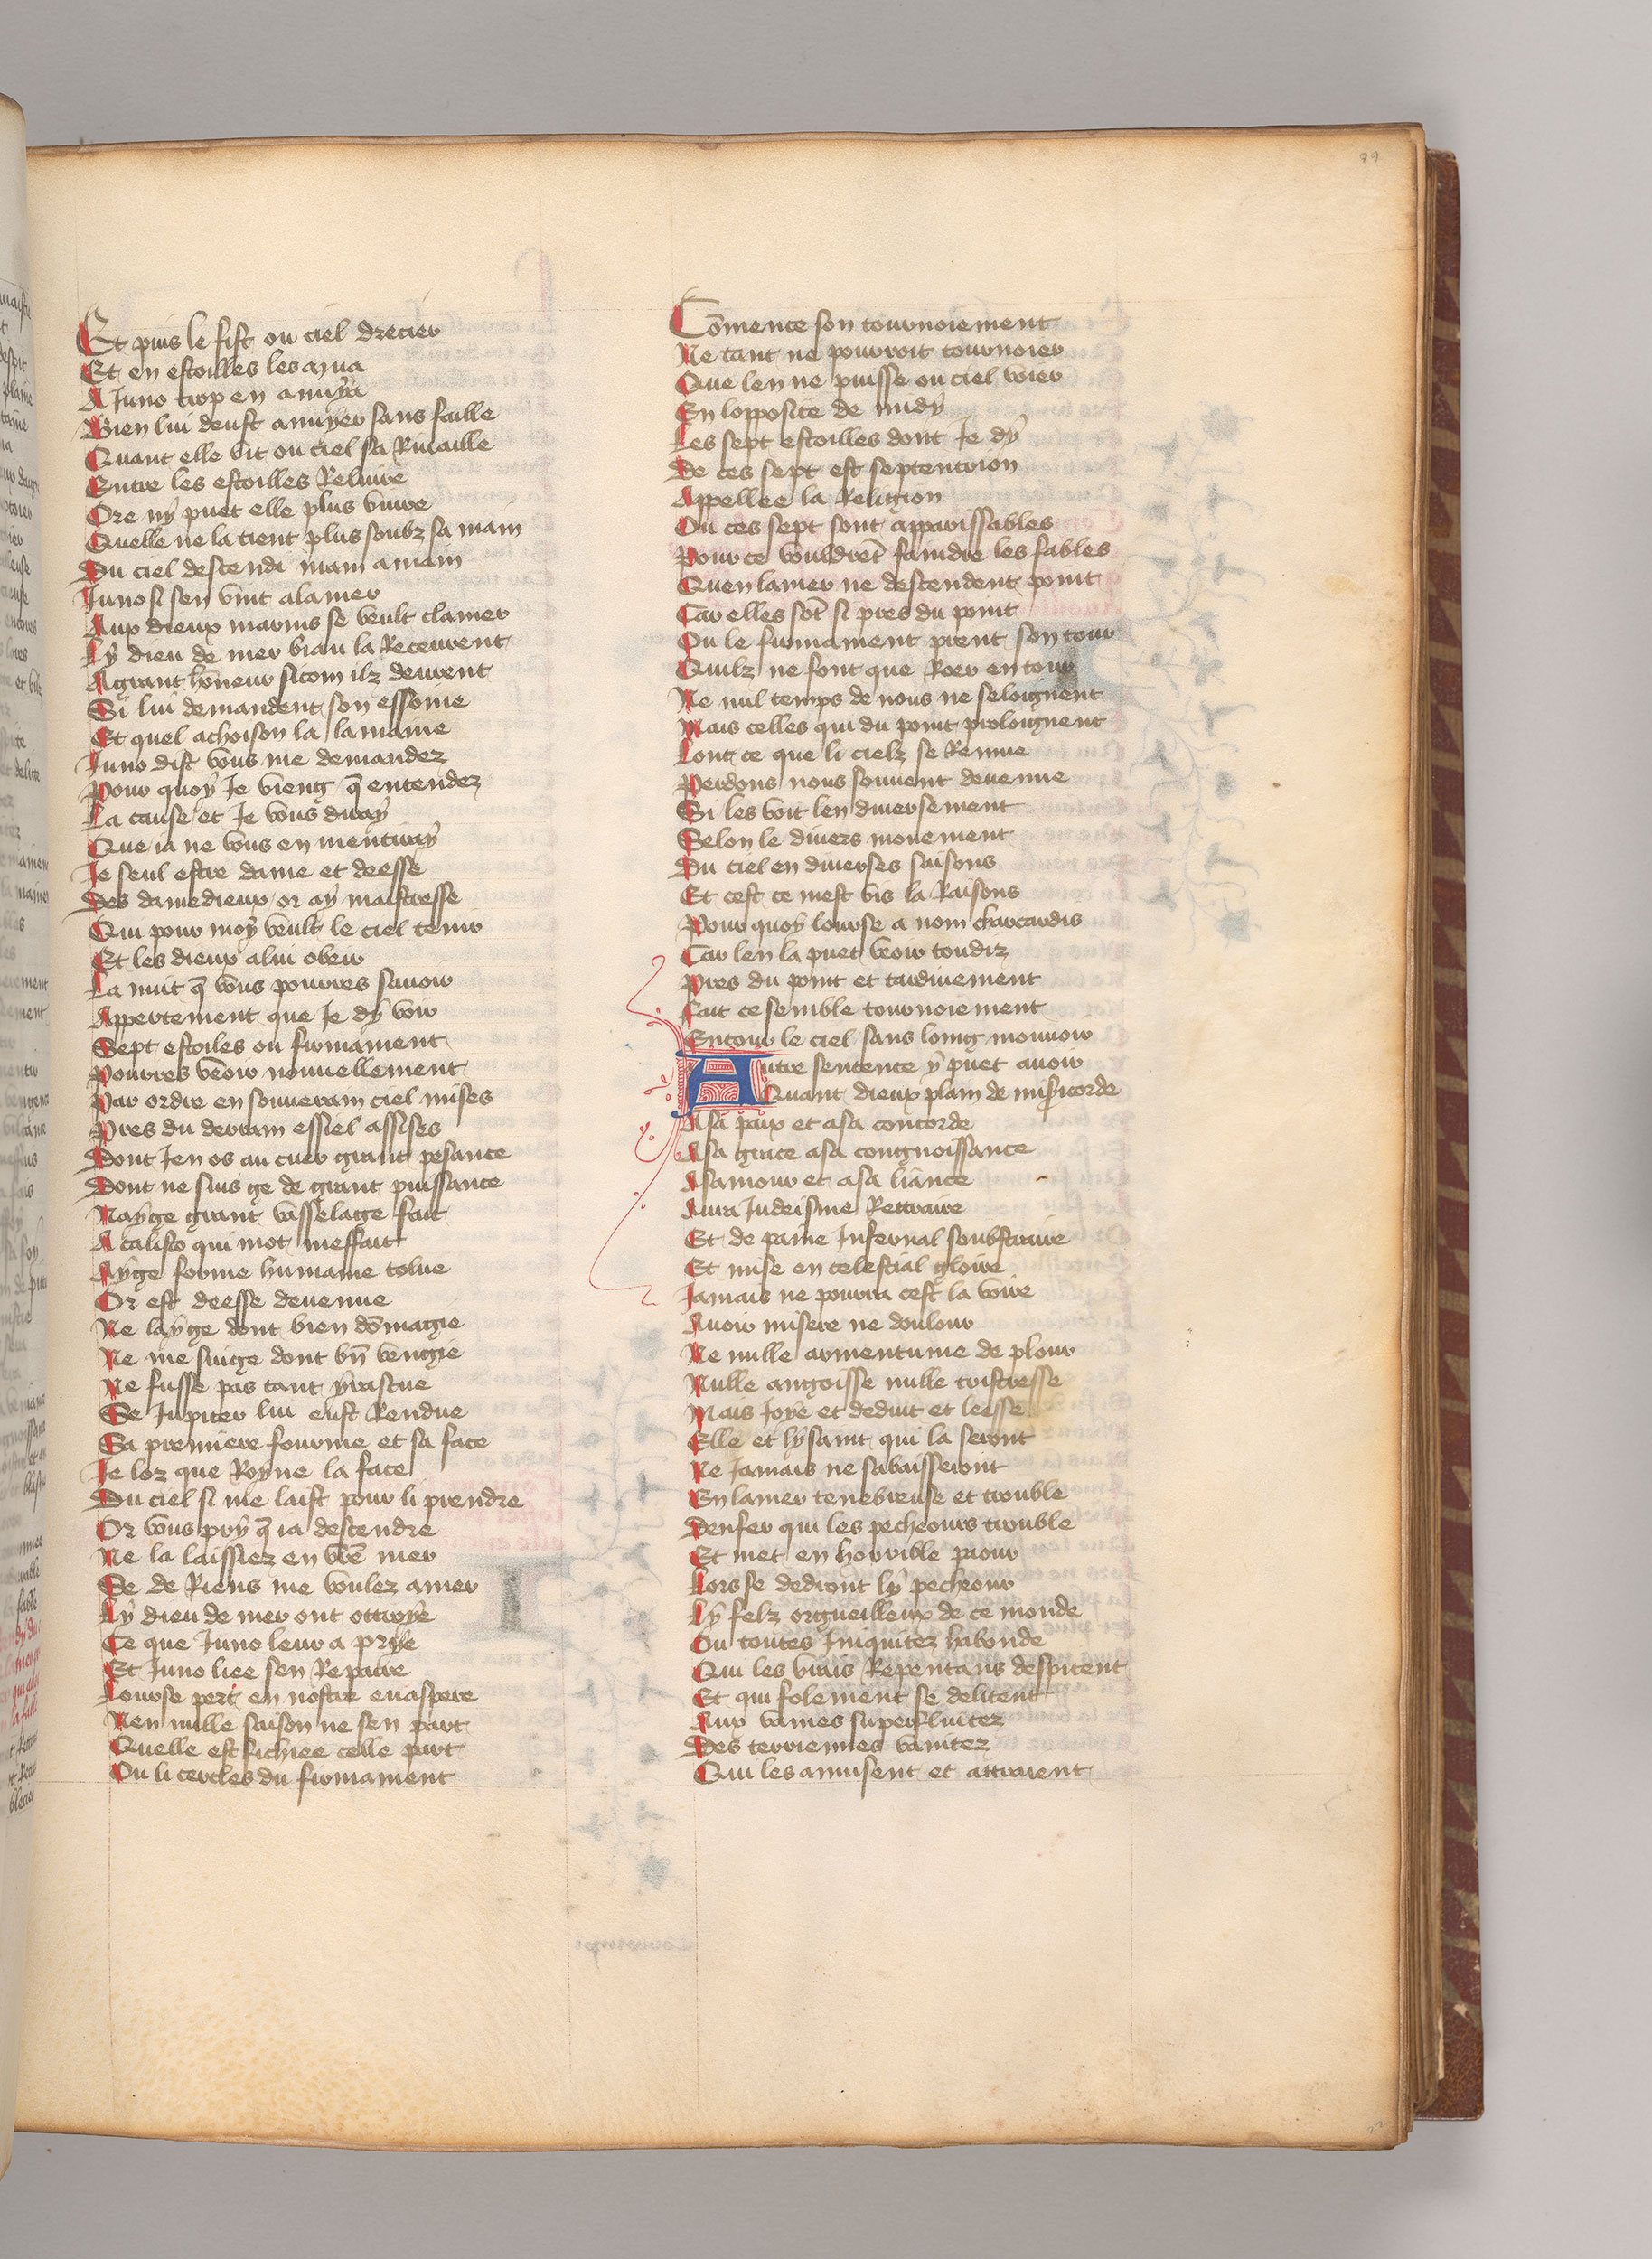 99
Et puis le fist ou ciel drecier
Et en estoilles les a mua
A Juno trop en anuya
Bien lui deust anuyer sans faille
Quant elle vit ou ciel sa Rucaille
Entre les estoilles Reluire
Ore ny puet elle plus vuire
Quelle ne la tient plus soubz sa main
Du ciel descendi main a main
Juno si sen vint a la mer
Aux dieux marins se veult clamer
Ly dieu de mer biau la Receurent
A grant hōneur si com ilz deurent
Si lui demandent son essoine
Et quel achoison la lamaine
Juno dist vous me demandez
Pour quoy Je vieng q̄ entendez
La cause et Je vous diray
Que ia ne vous en mentiray
Je seul estre dame et deesse
Des damedieux or ay maistresse
Qui pour moy veult le ciel tenir
Et les dieux a lui obeir
La nuit q̄ vous pourres sauoir
Appertement que Je dy voir
Sept estoiles ou firmament
Pourres veoir nouuellement
Par ordre en souuerain ciel mises
Pres du derrain essiel assises
Dont Jen os au cuer grant pesance
Dont ne suis ge de grant puissance
Nayge grant vasselage fait
A calisto qui mot meffait
Ayge forme humaine tolue
Or est deesse deuenue
Ne layge dont bien dōmagie
Ne me suige dont bn̄ vengie
Ne fusse pas tant yrascue
Se Jupiter lui eust Rendue
Sa premiere fourme et sa face
Je loz que Royne la face
Du ciel si me laist pour li prendre
Or vous pry q̄ ia descendre
Ne la laissiez en vr̄e mer
Se de Riens me voulez amer
Ly dieu de mer ont ottroye
Ce que Juno leur a prye
Et Juno liee sen Repaire
Lourse pert en nostre emaspere
Nen nulle saison ne sen part
Quelle est fichiee celle part
Ou li cercles du firmament
Cōmence son tournoiement
Ne tant ne pourroit tournoier
Que len ne puisse ou ciel voier
En lopposite de midy
Les sept estoilles dont Je dy
De ces sept est septentrion
Appellee la Religion
Ou ces sept sont apparissables
Pour ce vouldrēt faindre les fables
Quen la mer ne descendent point
Car elles sōt si pres du point
Ou le firmament prent son tour
Quilz ne font que Roer entour
Ne nul temps de nous ne seloignent
Mais celles qui du point proloignent
Lont ce que li cielz se Remue
Perdons nous souuent deuenue
Si les voit len diuersement
Selon le diuers mouement
Du ciel en diuerses saisons
Et cest ce mest vis la Raisons
Pour quoy lourse a nom charcardis
Car len la puet veoir toudiz
Pres du point et tardiuement
Fait ce semble tournoiement
Entour le ciel sans loing mouuoir
Autre sentence y puet auoir
Quant dieux plain de misicorde
A sa paix et a sa concorde
A sa grace a sa congnoissance
A samour et a sa liance
Aura Judeisme Rettraire
Et de paine Infernal soubstraire
Et mise en celestial gloire
Jamais ne pourra cest la voire
Auoir misere ne doulour
Ne nulle armentume de plour
Nulle angoisse nulle tristresse
Mais Joye et deduit et leesse
Elle et ly saint qui la seront
Ne Jamais ne sabaisseront
En la mer tenebreuse et trouble
Denfer qui les pecheours trouble
Et met en horrible paour
Lors se dediont ly pecheour
Ly felz orgueilleux de ce monde
Ou toutes Iniquitez habonde
Qui les vrais Repentans despitent
Et qui folement se delitent
Aux vaines superfluitez
Des terriennes vanitez
Qui les amusent et attraient